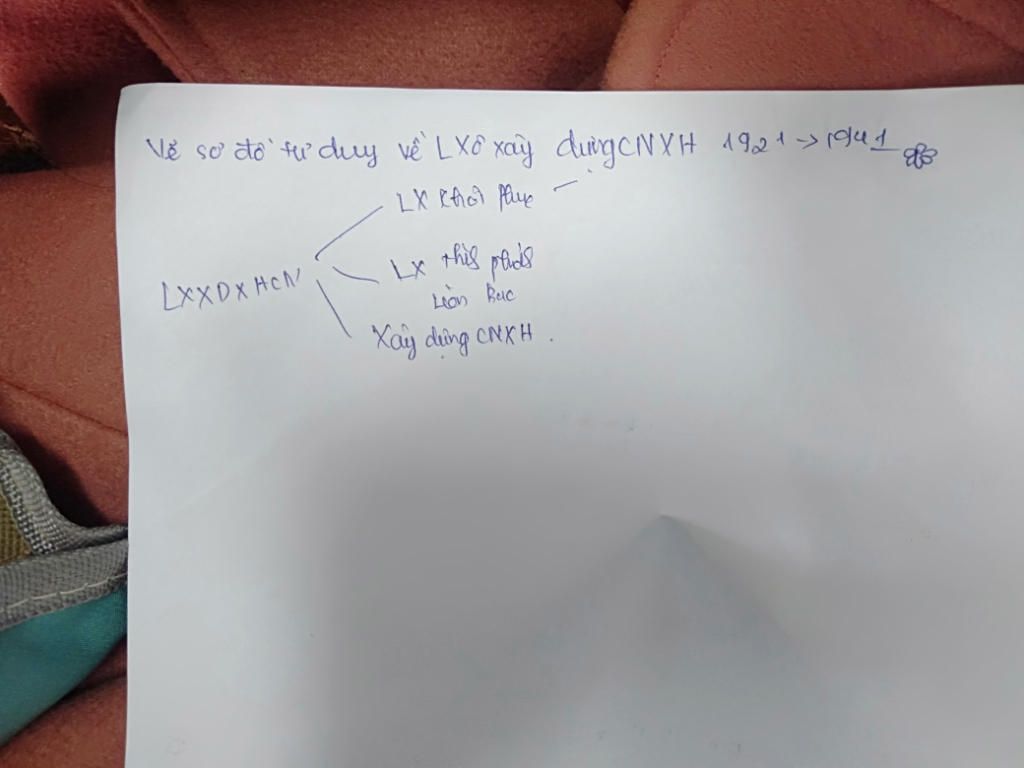 Vẽ sơ đồ tư duy về LXô xây dựng CNXH 1921 → 1941
LX khôi phục
LX
LXXDXHCN
Xây dựng CNXH.